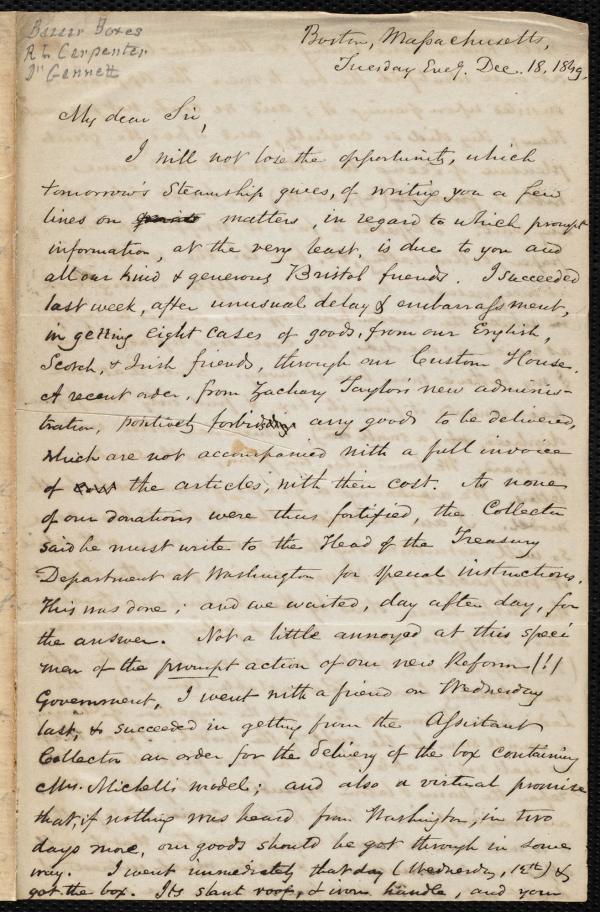 Bazaar Boxes
R L Carpenter
Dr Gannett
Boston, Massachusetts,
Tuesday Eveg. Dec. 18, 1849.
My dear Sir,
I will not lose the opportunity, which
tomorrow's Steamship gives, of writing you a few
lines on matters, in regard to which prompt
information, at the very least, is due to you and
all our kind & generous Bristol friends. I succeeded
last week, after unusual delay & embarrassment,
in getting eight cases of goods, from our English,
Scotch, & Irish friends, through our Custom House.
A recent order, from Zachary Taylor's new adminis-
tration, positively any goods to be delivered,
which are not accompanied with a full invoice
of the articles, with their cost. As none
of our donations were thus fortified, the Collector
said he must write to the Head of the Treasury
Department at Washington for special instructions.
This was done; and we waited, day after day, for
the answer. Not a little annoyed at this speci
men of the prompt action of our new Reform (!)
Government, I went with a friend on Wednesday
last, & succeeded in getting from the Assistant
Collector an order for the delivery of the box containing
Mrs. Michell's model; and also a virtual promise
that, if nothing was heard from Washington, in two
days more, our goods should be got through in some
way. I went immediately that day (Wednesday, 12th) &
got the box. Its slant roof, & iron handle, and your